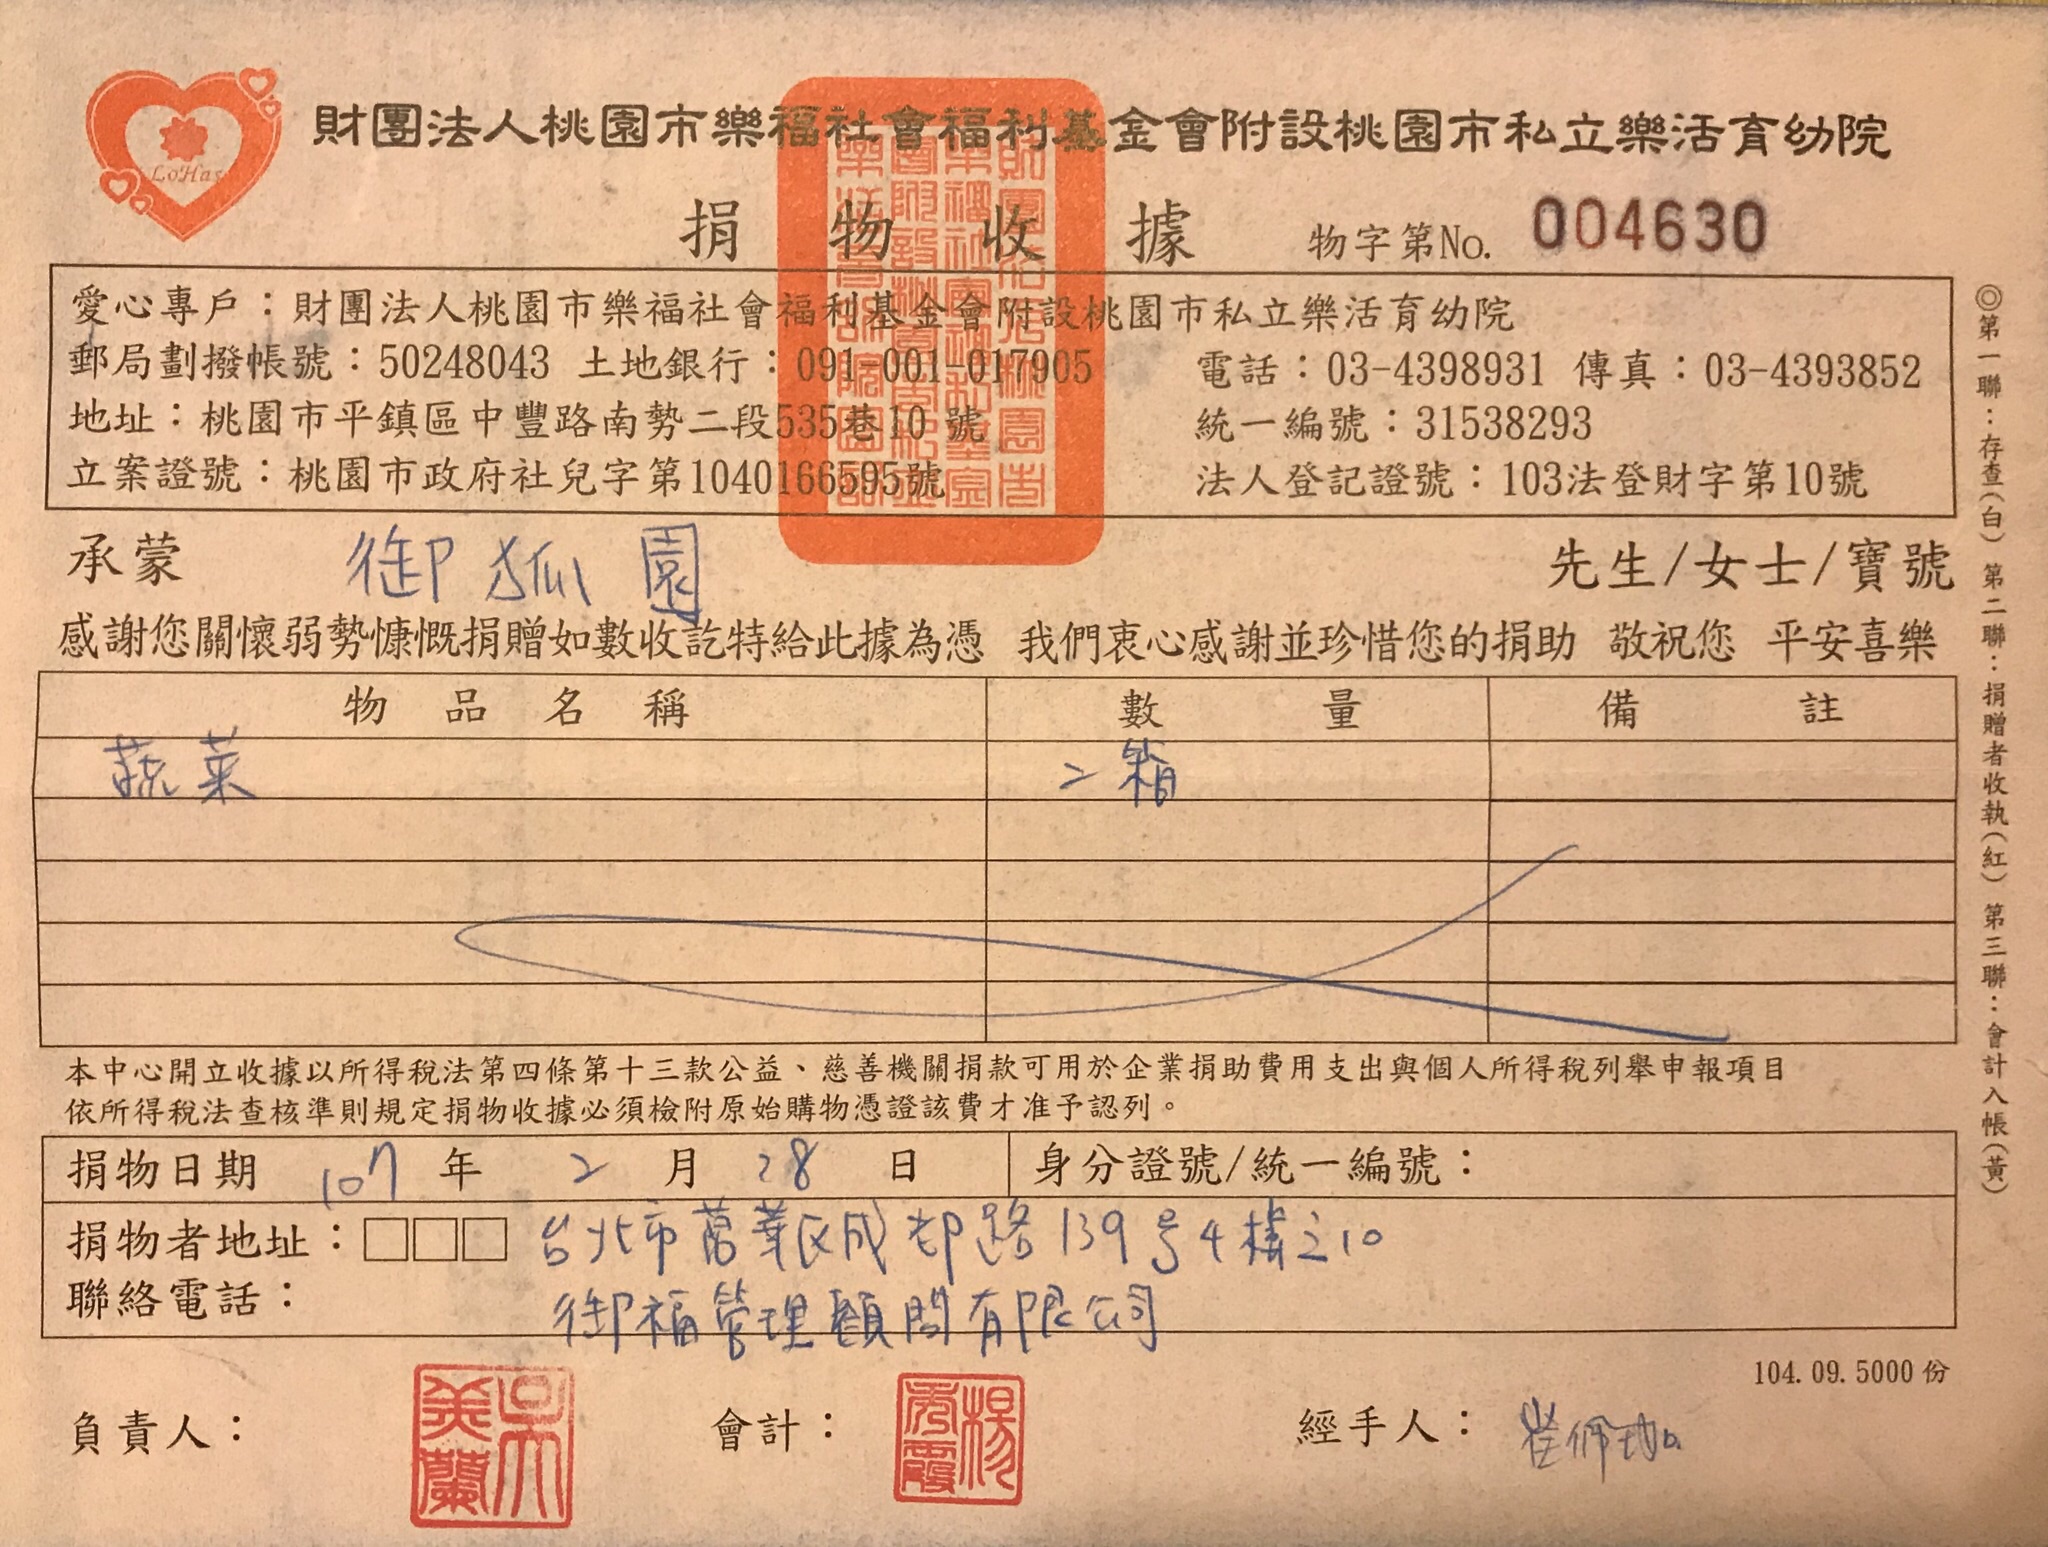 LoHas
財團法人桃園市樂福社會福利基金會附設桃園市私立樂活育幼院
捐物收據 物字第No. 004630
愛心專戶：財團法人桃園市樂福社會福利基金會附設桃園市私立樂活育幼院
郵局劃撥帳號：50248043 土地銀行：091-001-017905 電話：03-4398931 傳真：03-4393852
地址：桃園市平鎮區中豐路南勢二段535巷10號 統一編號：31538293
立案證號：桃園市政府社兒字第1040166595號 法人登記證號：103法登財字第10號
承蒙 御狐園 先生/女士/寶號
感謝您關懷弱勢慷慨捐贈如數收訖特給此據為憑 我們衷心感謝並珍惜您的捐助 敬祝您 平安喜樂
物品名稱 數量 備註
蔬菜 二箱
本中心開立收據以所得稅法第四條第十三款公益、慈善機關捐款可用於企業捐助費用支出與個人所得稅列舉申報項目
依所得稅法查核準則規定捐物收據必須檢附原始購物憑證該費才准予認列。
捐物日期 107 年 2 月 28 日 身分證號/統一編號：
捐物者地址：□□□ 台北市萬華區成都路139号4樓之10
聯絡電話： 御福管理顧問有限公司
104.09.5000份
負責人： 吳美蘭 會計： 楊秀霞 經手人：
◎第一聯：存查(白) 第二聯：捐贈者收執(紅) 第三聯：會計入帳(黃)